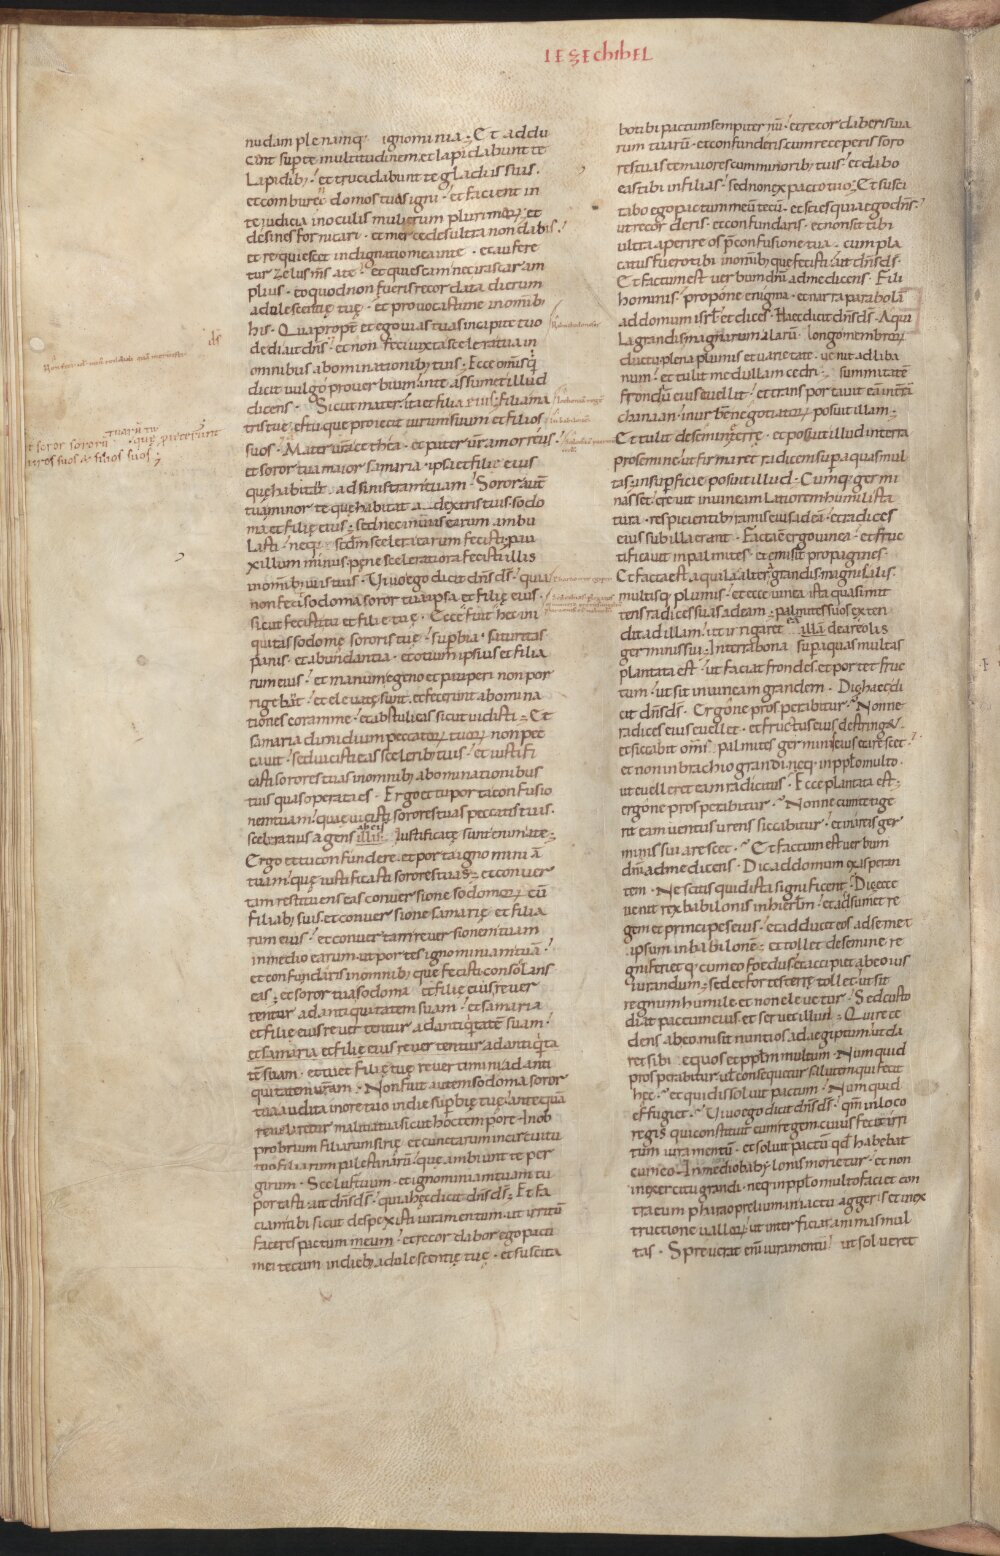 IEZECHIHEL
nudam plenamq; ignominia; Et addu
cent sup te multitudinem et lapidabunt te
Lapidib; et trucidabunt te gladiis suis.
et comburent domos tuas igni. et facient in
te iudicia in oculis mulierum plurimarum et
desines fornicari. et mercedes ultra non dabis.
et requiescet indignatio mea in te. et aufere
tur zelus ms a te. et quiescam nec irascar am
plius. eo quod non fueris recordata dierum
adulescentię tuę. et provocasti me in omnib;
his. Quapropt et ego vias tuas in capite tuo
dedi ait dns. et non feci iuxta scelera tua in
omnibus abominationib; tuis. Ecce omis q
dicit vulgo proverbium in te assumet illud
dicens. Sicut mater ita et filia eius. filia ma
tris tuę es tu que proiecit virum suum et filios
suos. Mater vra cethea. et pater vr amorreus.
et soror tua maior samaria ipsa et filię eius
quę habitat ad sinistram tuam. Soror aut
tua minor te quę habitat a dextris tuis sodo
ma et filię eius. sed nec in viis earum ambu
Lasti. neq; scdm scelera earum fecisti; pau
xillum minus. pene sceleratiora fecisti illis
in omnib; viis tuis. Vivo ego dicit dns ds. quia
non fecit sodoma soror tua ipsa et filię eius.
sicut fecisti tu et filię tuę. Ecce fuit hec ini
quitas sodomę sororis tuę. supbia. saturitas
panis. et abundantia. et otium ipsius et filia
rum eius. et manum egeno et pauperi non por
rigebat. et elevatę sunt. et fecerunt abomina
tiones coram me. et abstuli eas sicut vidisti; Et
samaria dimidium peccatorum tuorum non pec
cavit. sed vicisti eas sceleribus tuis. et iustifi
casti sorores tuas in omnib; abominationibus
tuis quas operata es. Ergo et tu porta confusio
nem tuam. quę vicisti sorores tuas peccatis tuis.
sceleratius agens ab eis illis. Iustificatę sunt enim a te;
Ergo et tu confundere. et porta ignominiā
tuam. quę iustificasti sorores tuas; et conver
tam restituens eas conversione sodomorum cū
filiab; suis et conversione samarię et filia
rum eius. et convertam reversionem tuam
in medio earum. ut portes ignominiam tuā.
et confundaris in omnib; que fecisti consolans
eas; et soror tua sodoma et filię eius rever
tentur ad antiquitatem suam. et samaria
et filię eius revertentur ad antiqtatē suam.
et samaria et filię eius revertentur ad antiqta
tē suam. et tu et filię tuę revertimini ad anti
quitatem vram. Non fuit autem sodoma soror
tua audita in ore tuo in die supbię tuę. antequā
revelaretur malitia tua sicut hoc tempore. In ob
probrium filiarum sirię et cunctarum in circuitu
tuo filiarum palestinarū. quę ambiunt te per
girum. Scelus tuum. et ignominiam tuam tu
portasti. ait dns ds. quia hęc dicit dns ds; Et fa
ciam tibi sicut despexisti iuramentum. ut irritū
faceres pactum meum. et recordabor ego pacti
mei tecum in dieb; adulescentię tuę. et suscita
bo tibi pactum sempiternū. et recordaberis via
rum tuarū. et confunderis cum receperis soro
res tuas te maiores cum minorib; tuis. et dabo
eas tibi in filias. sed non ex pacto tuo; Et susci
tabo ego pactum meū tecū. et scies quia ego dns.
ut recorderis. et confundaris. et non sit tibi
ultra aperire os p confusione tua. cum pla
catus fuero tibi in omib; que fecisti ait dns ds.
Et factum est verbum dni ad me dicens. Fili
hominis propone enigma. et narra parabolā
ad domum isrl. et dices. Haec dicit dns ds. Aqui
La grandis magnarum alarū. longo membrorum
ductu plena plumis et varietate. venit ad liba
num. et tulit medullam cedri. summitatē
frondiū eius evellit. et transportavit eā in terrā
chanaan. in urbe negotiatorum posuit illam.
Et tulit de semine terrę. et posuit illud in terra
pro semine. ut firmaret radicem sup aquas mul
tas. in superficie posuit illud. Cumq; germi
nasset. crevit in vineam Latiorem humili sta
tura. respicientib; ramis eius ad eā. et radices
eius sub illa erant. Facta ē ergo vinea. et fruc
tificavit in palmites. et emisit propagines.
Et facta est aquila altera grandis. magnis alis.
multisq; plumis. et ecce vinea ista quasi mit
tens radices suas ad eam; palmites suos exten
dit ad illam. ut irrigaret eā illā de areolis
germinis sui. In terra bona sup aquas multas
plantata est. ut faciat frondes. et portet fruc
tum. ut sit in vineam grandem. Dic haec di
cit dns ds. Ergone prosperabitur. Nonne
radices eius evellet. et fructus eius destringet.
et siccabit oms palmites germinis eius. et arescet.
et non in brachio grandi. neq; in pplo multo.
ut evelleret eam radicitus. Ecce plantata est;
ergone prosperabitur. Nonne cum tetige
rit eam ventus urens siccabitur. et in areis ger
minis sui arescet. Et factum est verbum
dni ad me dicens. Dic ad domum exasperan
tem. Nescitis quid ista significent. Dic ecce
venit rex babilonis in hierlm. et adsumet re
gem et principes eius. et adducet eos ad semet
ipsum in babilonē; et tollet de semine re
gni. feriet q; cum eo foedus. et accipiet ab eo ius
iurandum; sed et fortes terrę tollet. ut sit
regnum humile et non elevetur. Sed custo
diat pactum eius. et servet illud; Qui rece
dens ab eo misit nuntios ad aegiptum. ut da
ret sibi equos et pplm multum. Numquid
prosperabitur. vel consequetur salutem qui fecit
hec. et qui dissolvit pactum. Numquid
effugiet. Vivo ego dicit dns ds. qm in loco
regis qui constituit eum regem cuius fecit irri
tum iuramentū. et solvit pactū qd habebat
cum eo. In medio babylonis morietur. et non
in exercitu grandi. neq; in pplo multo faciet con
tra eum pharao prelium. in iactu aggeris et in ex
tructione vallorum. ut interficiat animas mul
tas. Spreverat enī iuramentū. ut solveret